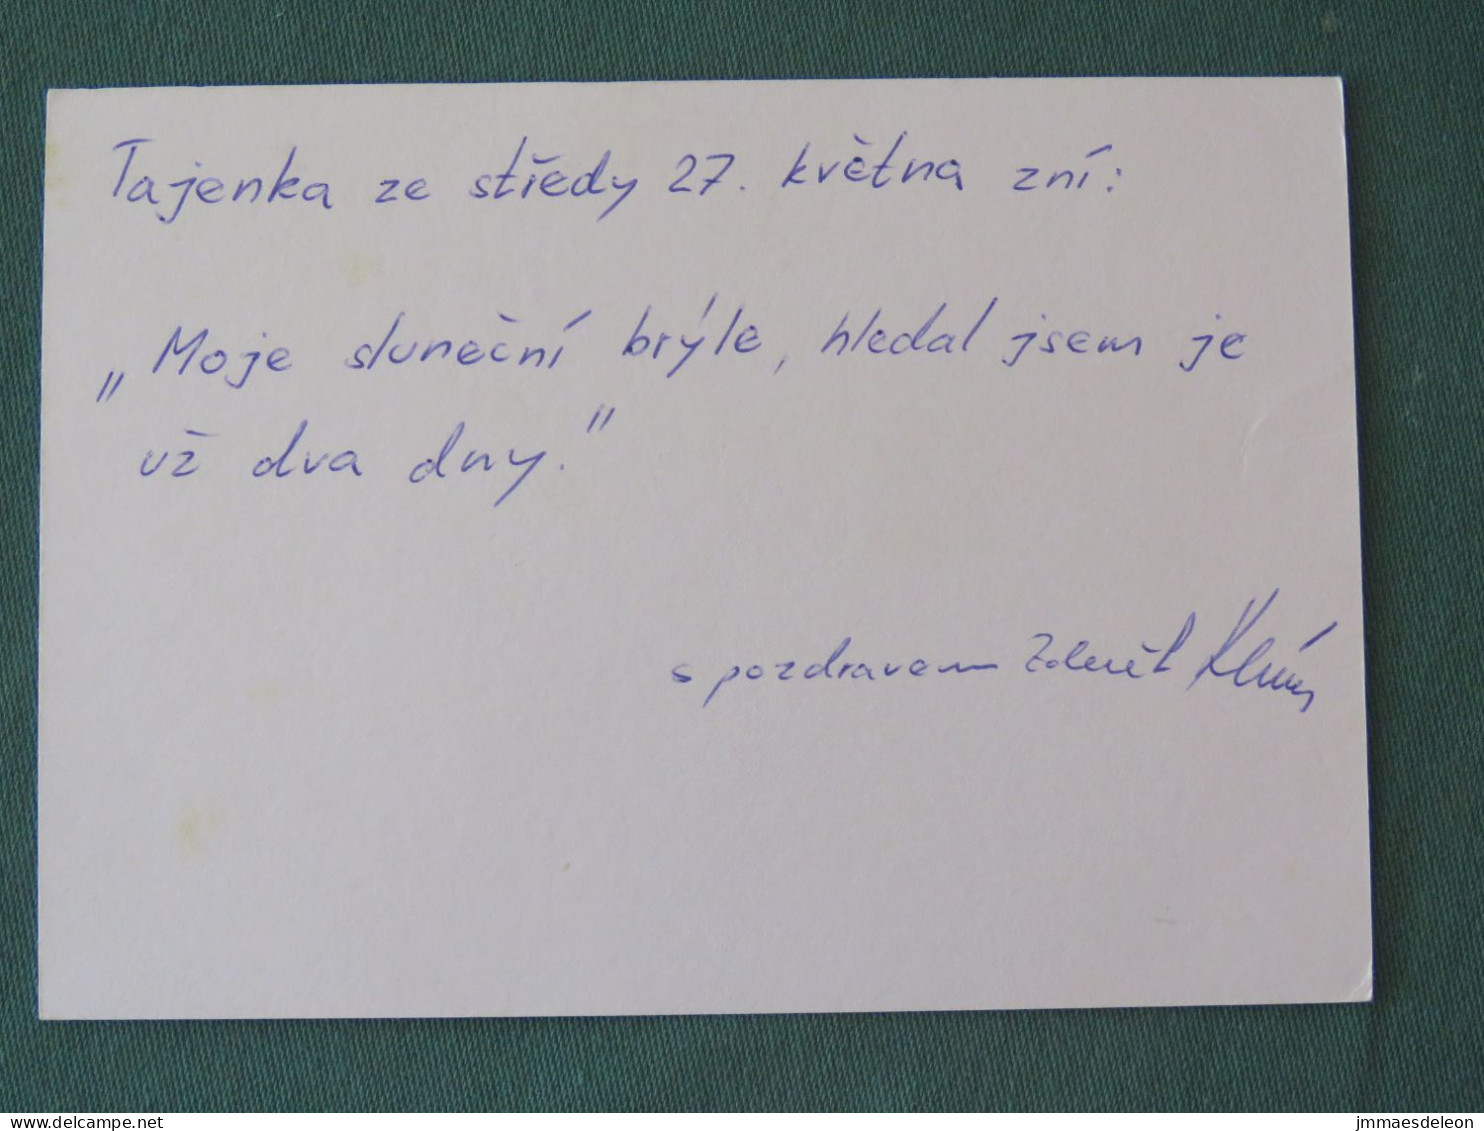 Tajenka ze středy 27. května zní:
„Moje sluneční brýle, hledal jsem je
už dva dny."
s pozdravem Zdeněk
www.delcampe.net
jmmaesdeleon